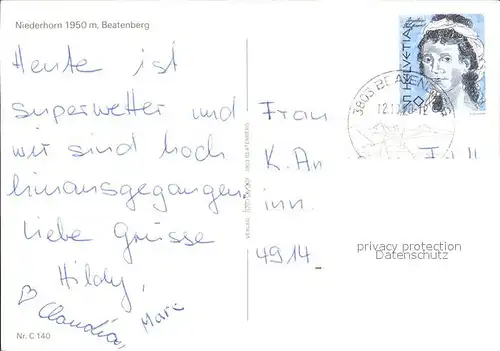 Niederhorn 1950 m, Beatenberg
Heute ist
superwetter und
wir sind hoch
hinausgegangen.
Liebe Grüsse
Hildy,
Claudia, Marc
Nr. C 140
HELVETIA
3803 BEATENB
Frau
K. An
inn.
4914
privacy protection
Datenschutz